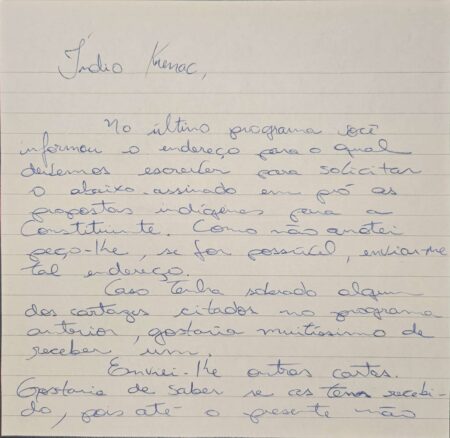 Índio Krenac,
No último programa você
informou o endereço para o qual
devemos escrever para solicitar
o abaixo-assinado em pró as
propostas indígenas para a
Constituinte. Como não anotei
peço-lhe, se for possível, enviar-me
tal endereço.
Caso tenha sobrado algum
dos cartazes citados no programa
anterior, gostaria muitíssimo de
receber um.
Enviei-lhe outras cartas.
Gostaria de saber se as tem recebi-
do, pois até o presente não